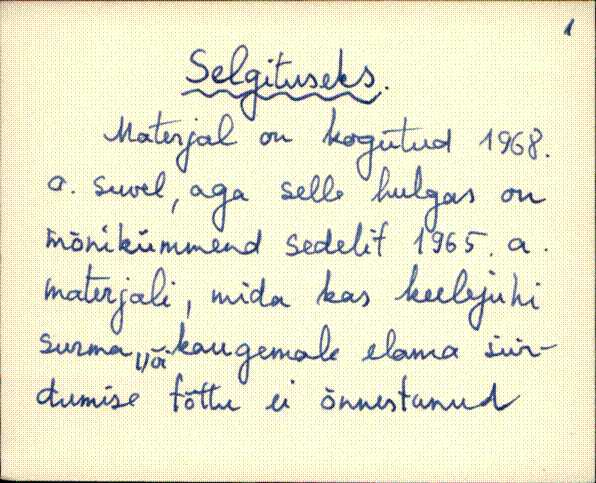 1
Selgituseks.
Materjal on kogutud 1968.
a. suvel, aga selle hulgas on
mõnikümmend sedelit 1965. a.
materjali, mida kas keelejuhi
surma, kaugemale elama siir-
dumise tõttu ei õnnestunud